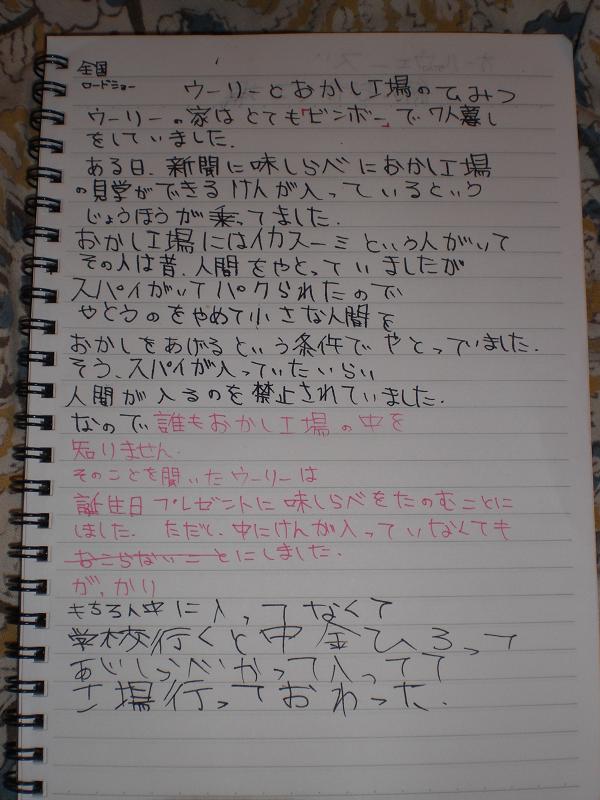 全国
ロードショー
ウーリーとおかし工場のひみつ
ウーリーの家はとても「ビンボー」で7人暮し
をしていました.
ある日、新聞に味しらべにおかし工場
の見学ができるけんが入っているという
じょうほうが乗ってました.
おかし工場にはイカスーミという人がいて
その人は昔、人間をやとっていましたが
スパイがいてパクられたので
やとうのをやめて小さな人間を
おかしをあげるという条件でやとっていました.
そう、スパイが入っていたいらい
人間が入るのを禁止されていました.
なので誰もおかし工場の中を
知りません.
そのことを聞いたウーリーは
誕生日プレゼントに味しらべをたのむことに
しました. ただし、中にけんが入っていなくても
おこらないことにしました.
が、かり
もちろん中に入ってなくて
学校行くと中金ひろって
あじしらべかって入ってて
工場行っておわった.